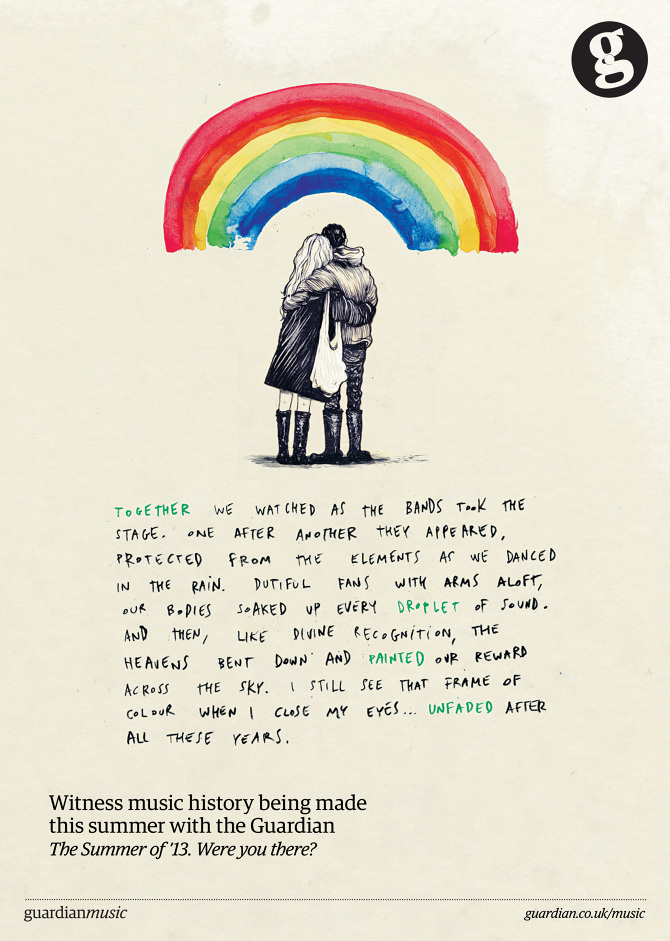 g
TOGETHER WE WATCHED AS THE BANDS TOOK THE
STAGE. ONE AFTER ANOTHER THEY APPEARED,
PROTECTED FROM THE ELEMENTS AS WE DANCED
IN THE RAIN. DUTIFUL FANS WITH ARMS ALOFT,
OUR BODIES SOAKED UP EVERY DROPLET OF SOUND.
AND THEN, LIKE DIVINE RECOGNITION, THE
HEAVENS BENT DOWN AND PAINTED OUR REWARD
ACROSS THE SKY. I STILL SEE THAT FRAME OF
COLOUR WHEN I CLOSE MY EYES... UNFADED AFTER
ALL THESE YEARS.
Witness music history being made
this summer with the Guardian
The Summer of '13. Were you there?
guardianmusic
guardian.co.uk/music